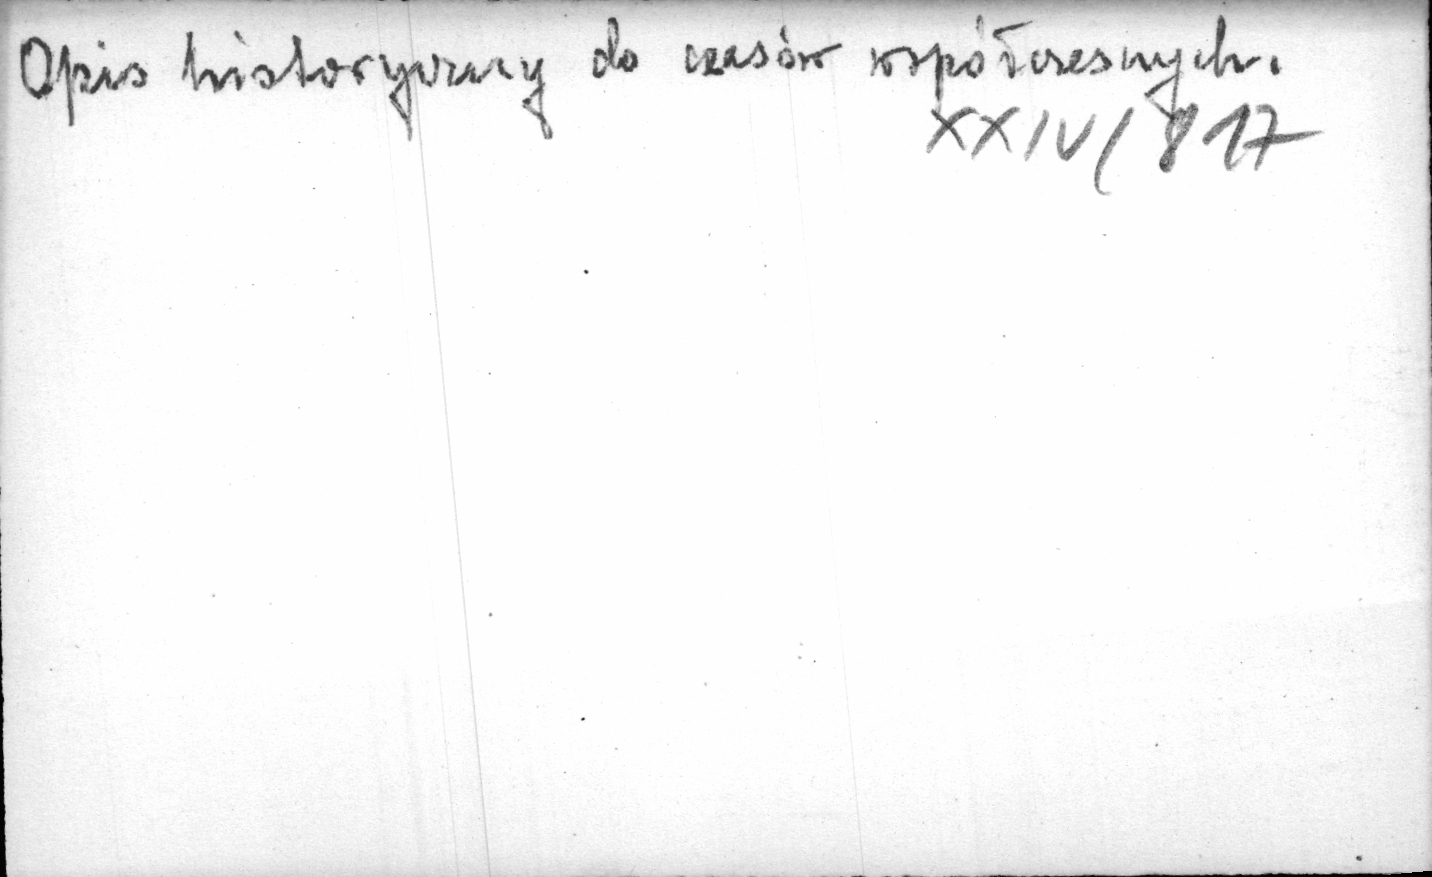 Opis historyczny do czasów współczesnych.
XXIV/817